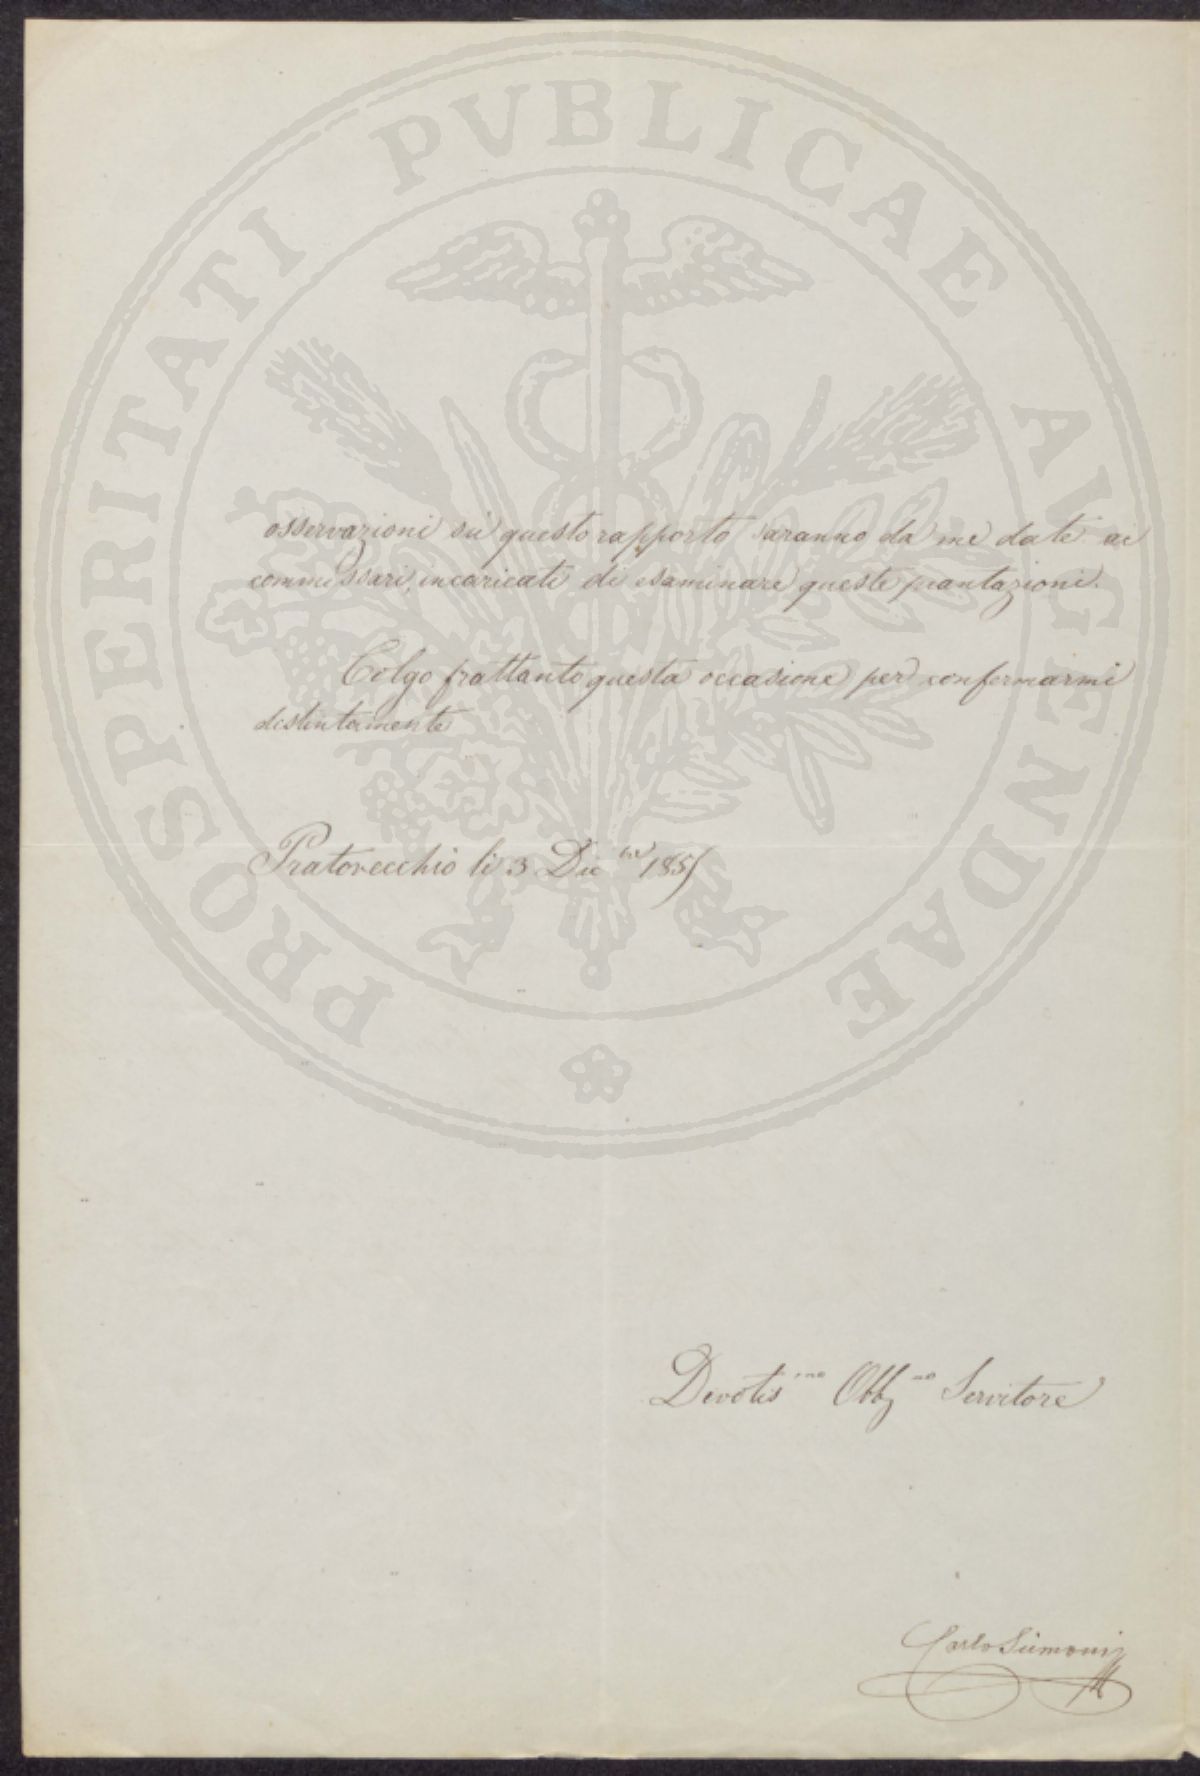 PROSPERITATI PVBLICAE AVGENDAE
osservazioni sù questo rapporto saranno da me date ai
commissari, incaricati di esaminare queste piantazioni.
Colgo frattanto questa occasione per confermarmi
distintamente
Pratovecchio li 3 Dic bre
Devotis mo Obb mo Servitore
Carlo Siemoni